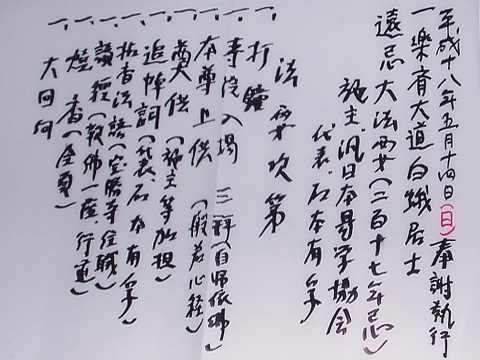 平成十八年五月十四日(日)奉謝執行
一楽斉大道白蛾居士
遠忌大法要(二百十七年忌)
施主 汎日本易学協会
代表 石本有孚
法要次第
一、打鐘
一、寺院入場 三拝(自帰依佛)
一、本尊上供(般若心経)
一、奠供(施主等献香)
一、追悼詞(代表 石本有孚)
一、拈香法語(宝勝寺住職)
一、読経(教佛一座行道)
一、焼香(全員)
大回向